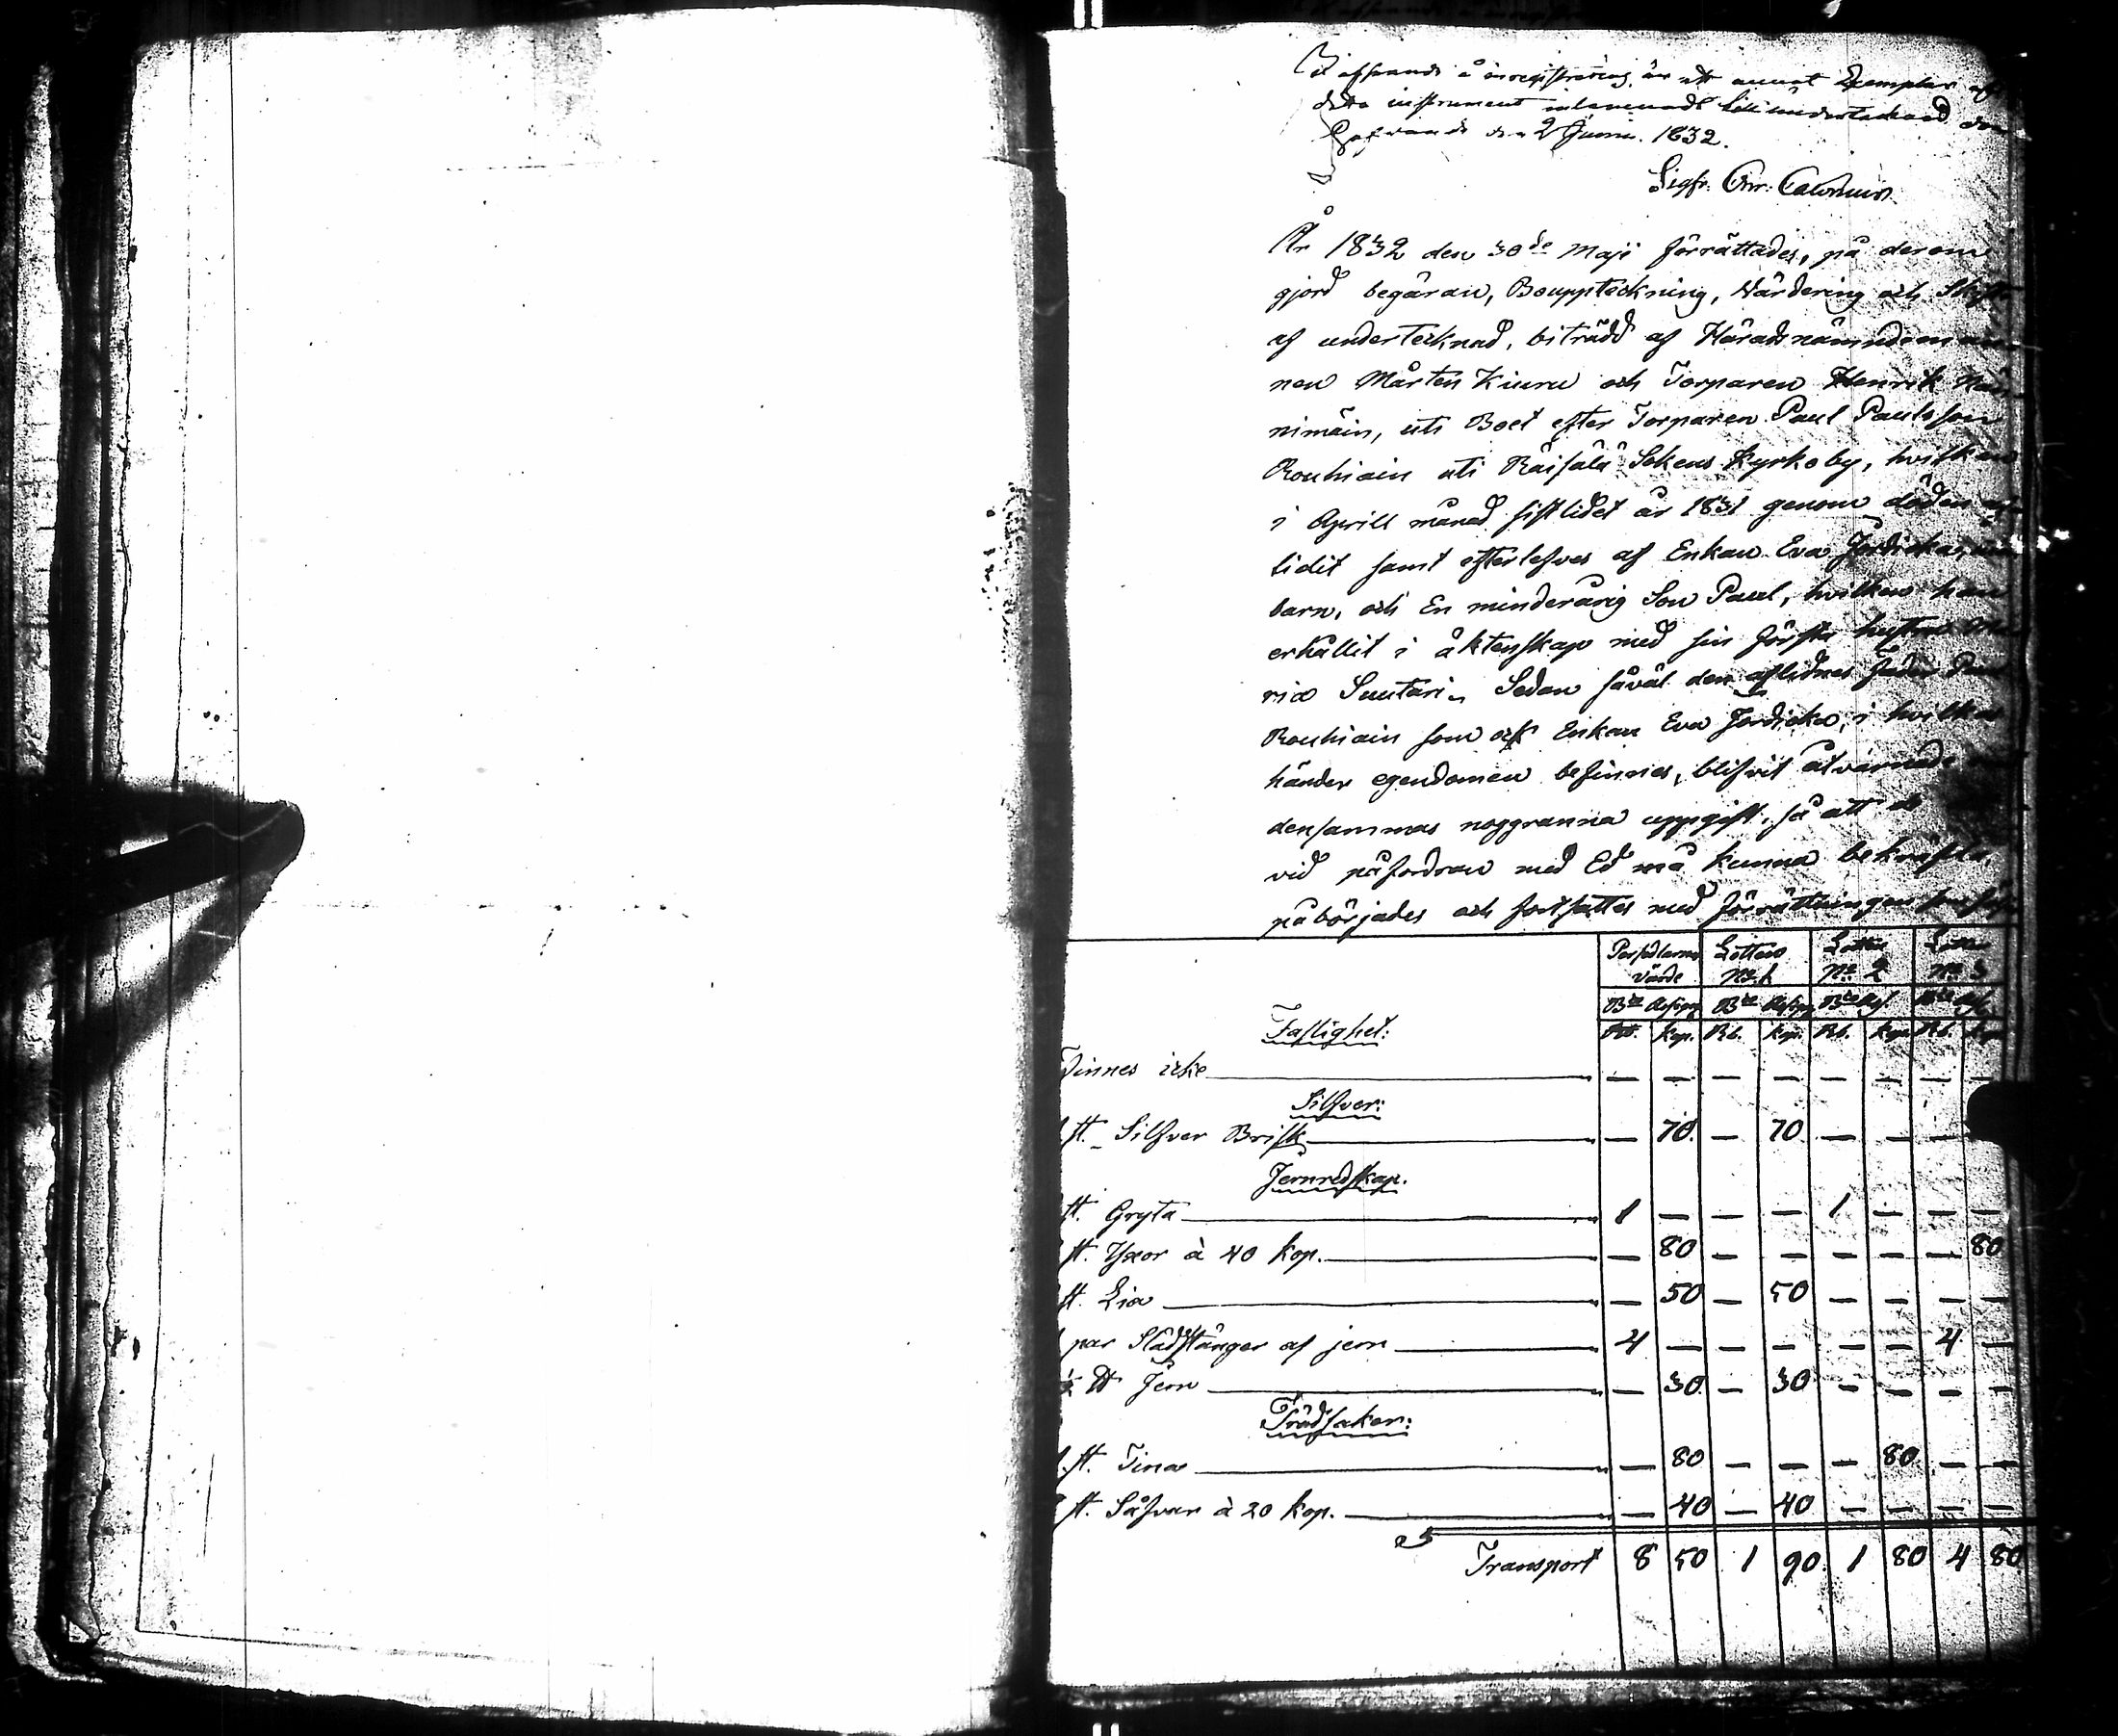 Til afseende å inregistrering är ett annat Exemplar af
detta instrument inlemnadt till undertecknad den
den 2 Junii 1832.
Sigfr. Calonius
År 1832 den 30de Maji förrättades, på derom
gjord begäran, Bouppteckning, Värdering och Skifte
af undertecknad, biträdd af Häradsnämndeman-
nen Mårten Kiuru och Torparen Henrik
nimäin, uti Boet efter Torparen Paul Paulsson
Rouhiain uti Räisälä Sokens Kyrkoby, hvilken
i Aprill månad sistlidet år 1831 genom döden af-
lidit samt efterlefves af Enkan Eva
barn, och En minderårig Son Paul, hvilken han
erhållit i äktenskap med sin första hustru Ma-
ria Suutari. Sedan såväl den aflidnes Fader Paul
Rouhiain som ock Enkan Eva i hvilkas
händer egendomen befinnes, blifvit åtvarnade
densammas noggranna uppgift, så att de
vid påfordran med Ed må kunna bekräfta
påbörjades och fortsattes med förrättningen som följer
Persedlarnes Lotten Lotten Lotten
värde No 1 No 2 No 3
Bco Assign Bco Assign Bco Ass. Bco Ass.
Rb. kop. Rb. kop. Rb. kop. Rb. kop.
Fastighet:
Finnes icke — — — — — — — —
Silfver:
st. Silfver Brisk — 70. — 70 — — —
Jernredskap.
st. Gryta 1 — — — 1 — — —
st. Yxor à 40 kop. — 80 — — — — — 80
st. Lia — 50 — 50 — — — —
par Slädstänger af jern 4 — — — — — 4 —
½ ℔ Jern — 30 — 30 — — — —
Trädsaker:
st. Tina — 80 — — — 80 — —
st. Såfvar à 20 kop. — 40 — 40 — — — —
Transport 8 50 1 90 1 80 4 80